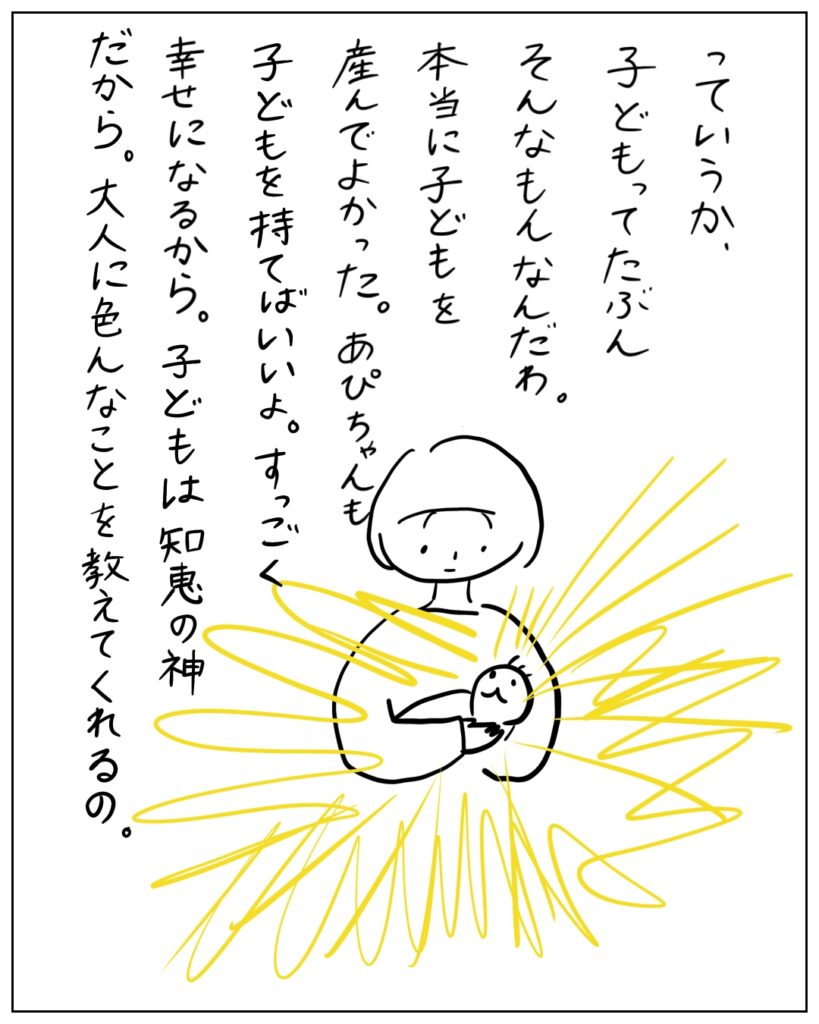 っていうか、
子どもってたぶん
そんなもんなんだわ。
本当に子どもを
産んでよかった。あぴちゃんも
子どもを持てばいいよ。すっごく
幸せになるから。子どもは知恵の神
だから。大人に色んなことを教えてくれるの。